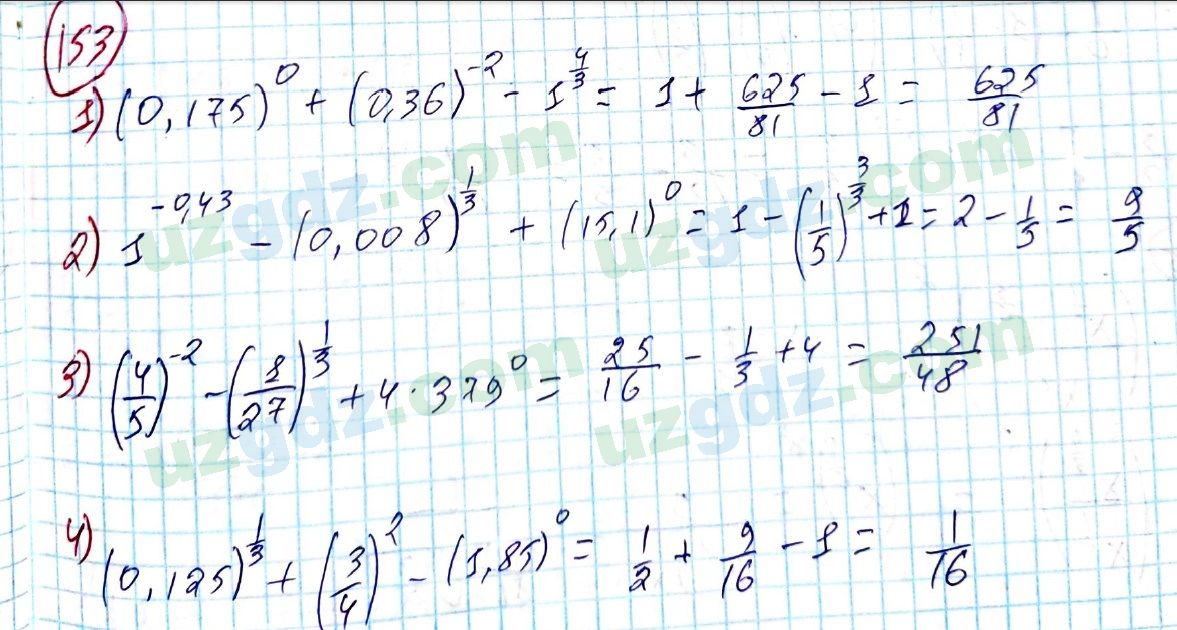 153
1) (0,175)^0 + (0,36)^-2 - 1^(4/3) = 1 + 625/81 - 1 = 625/81
2) 1^-0,43 - (0,008)^(1/3) + (15,1)^0 = 1 - (1/5)^(3/3) + 1 = 2 - 1/5 = 9/5
3) (4/5)^-2 - (8/27)^(1/3) + 4·379^0 = 25/16 - 1/3 + 4 = 251/48
4) (0,125)^(1/3) + (3/4)^2 - (1,85)^0 = 1/2 + 9/16 - 1 = 1/16
uzgdz.com
uzgdz.com
uzgdz.com
uzgdz.com